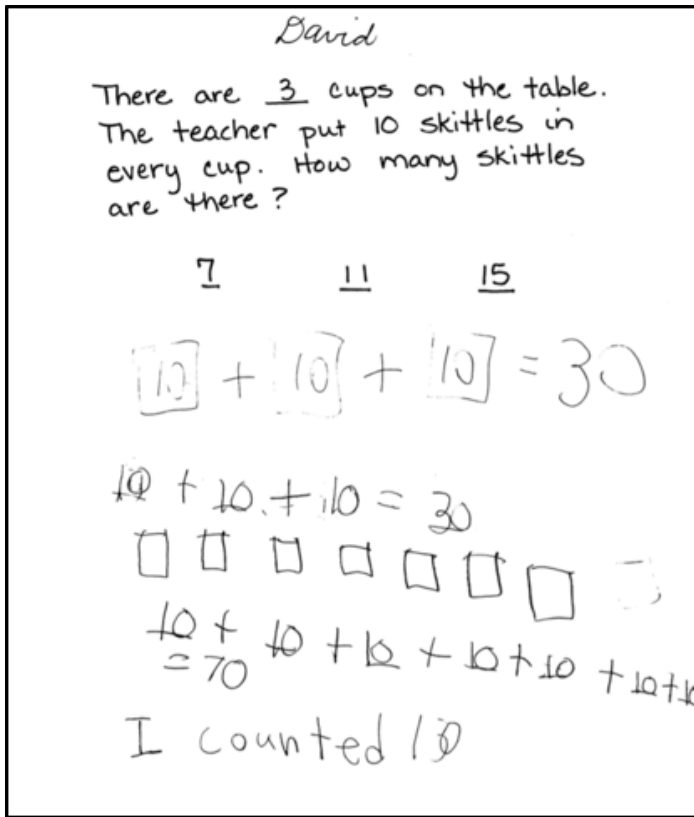 David
There are 3 cups on the table.
The teacher put 10 skittles in
every cup. How many skittles
are there?
7 11 15
10 + 10 + 10 = 30
10 + 10 + 10 = 30
10 + 10 + 10 + 10 + 10 + 10 + 10
= 70
I counted 10